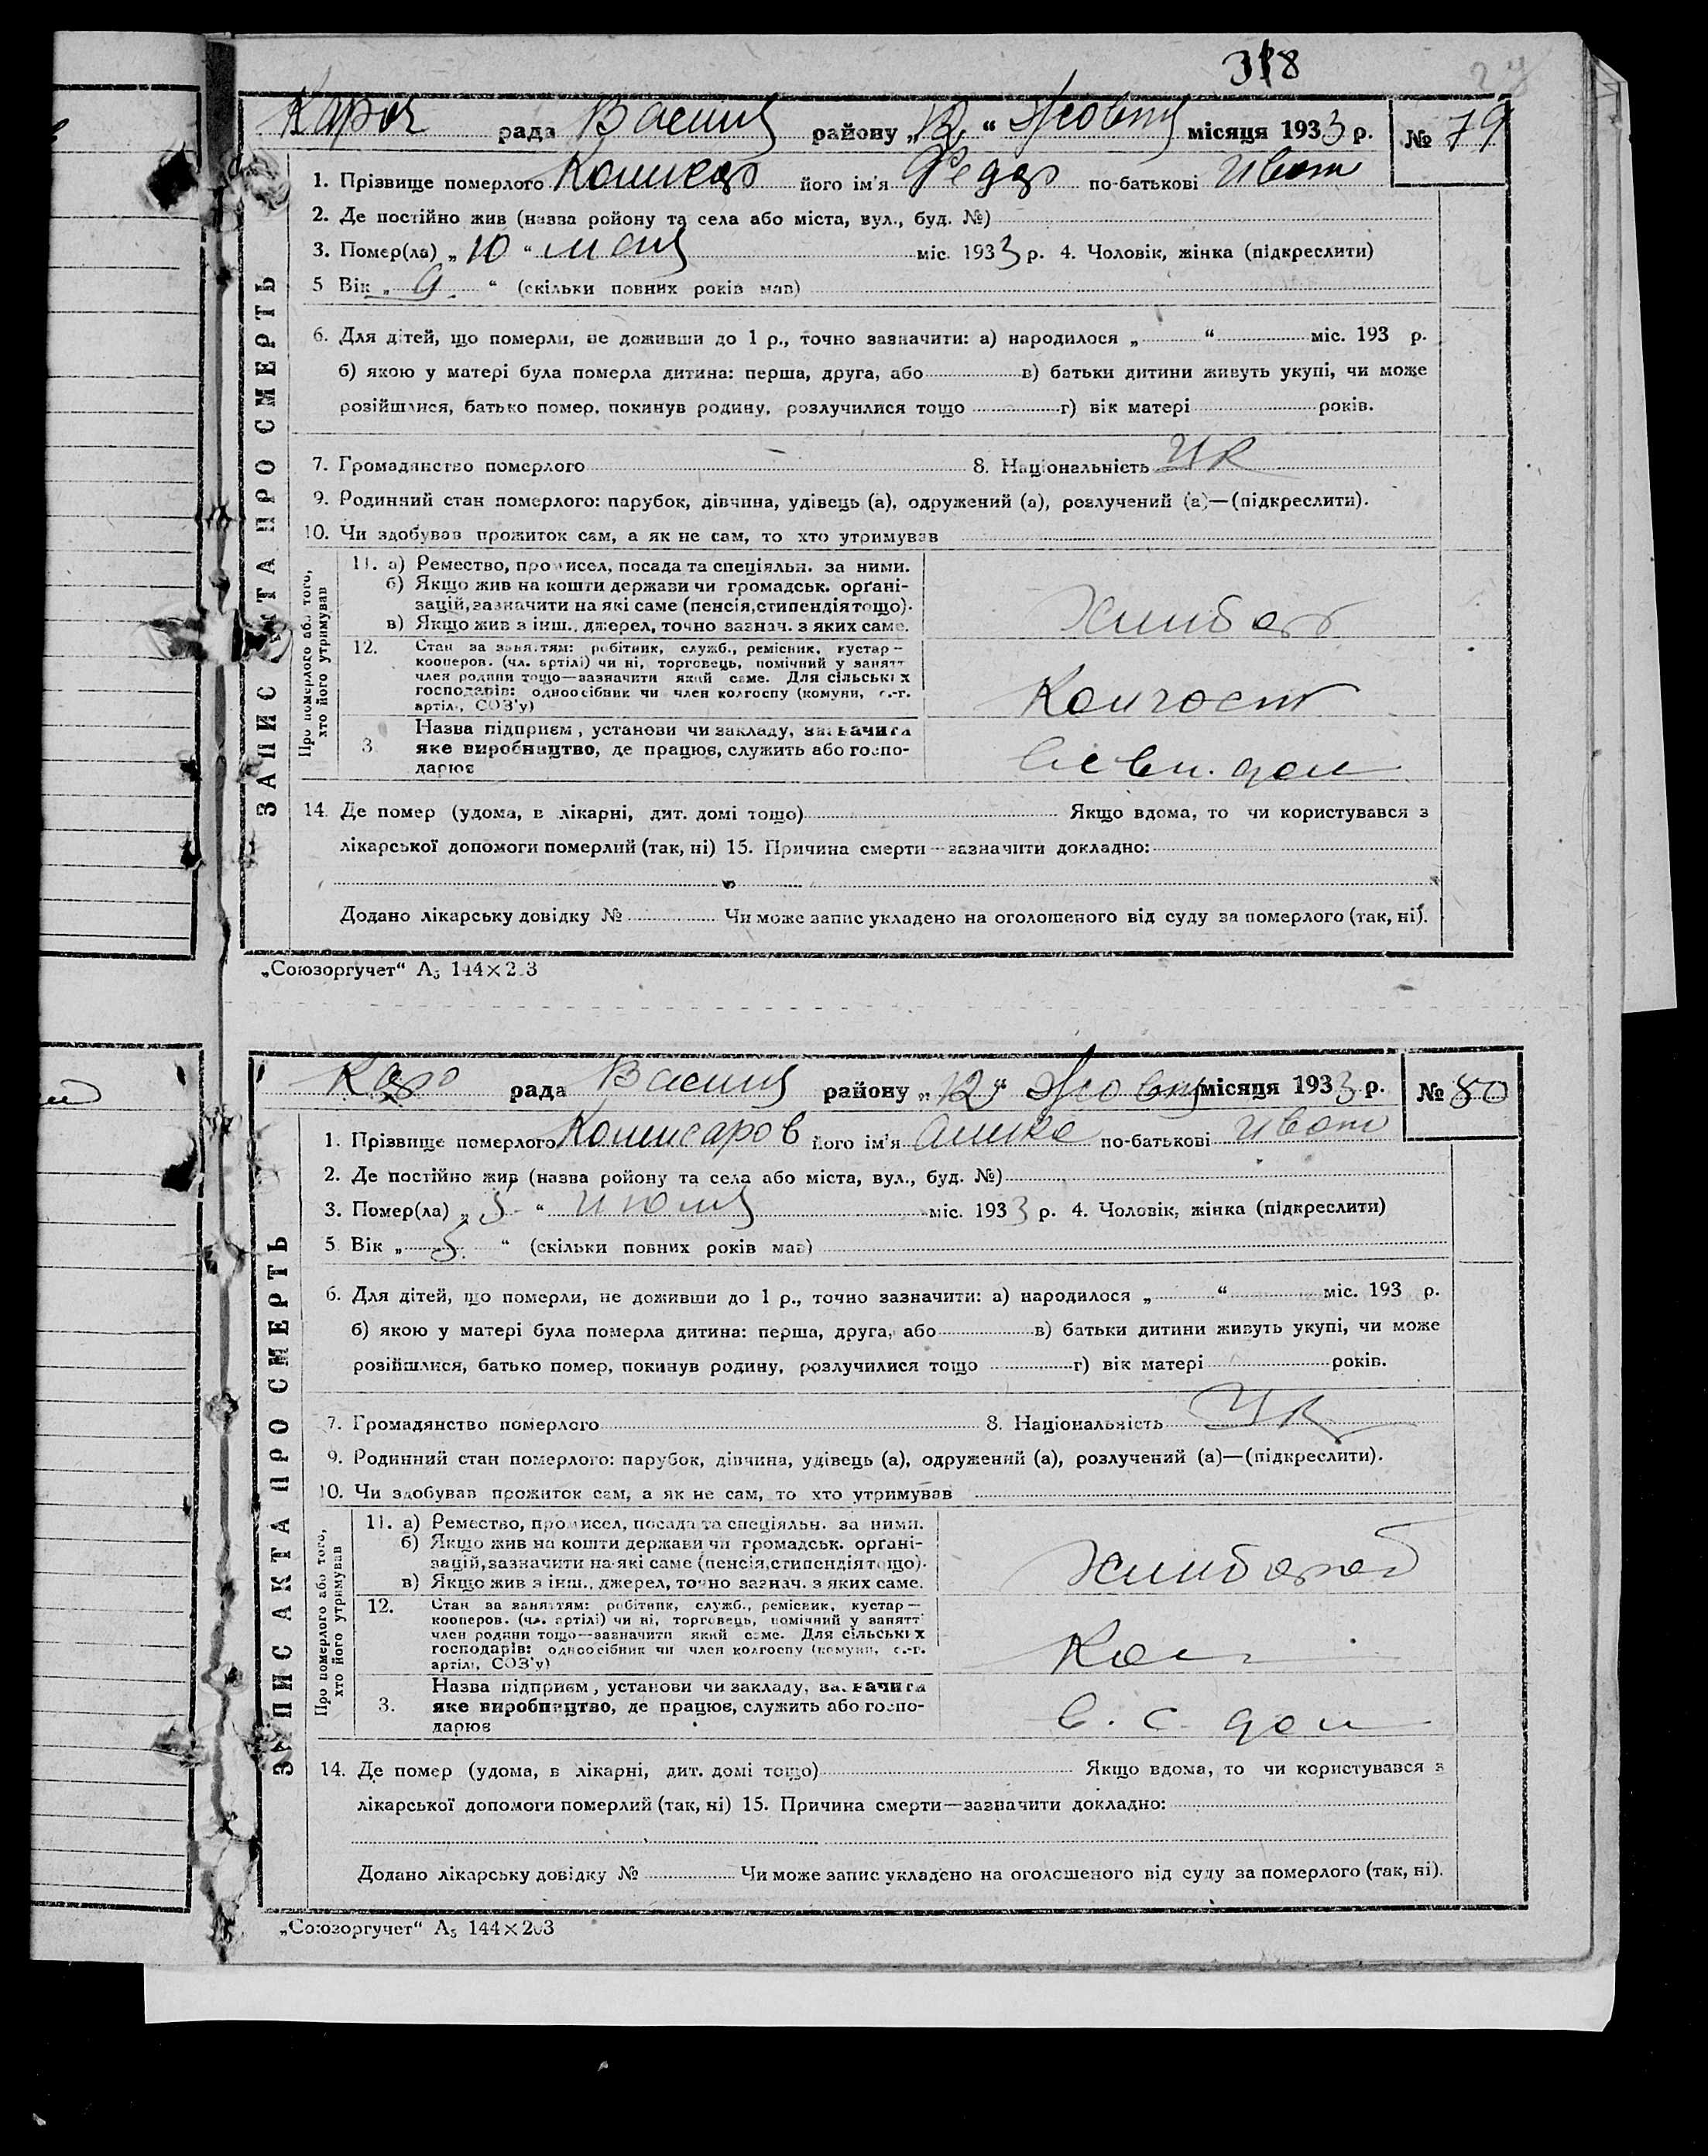 318
рада Васил району „12“ Жовтн місяця 1933 р. № 79
1. Прізвище померлого Комисар його ім'я Федор по-батькові Иван
2. Де постійно жив (назва ройону та села або міста, вул., буд. №)
3. Помер(ла) „10“ мая міс. 1933 р. 4. Чоловік, жінка (підкреслити)
5 Вік „9“ (скільки повних років мав)
6. Для дітей, що померли, не доживши до 1 р., точно зазначити: а) народилося „ “ міс. 193 р.
б) якою у матері була померла дитина: перша, друга, або в) батьки дитини живуть укупі, чи може
розійшлися, батько помер, покинув родину, розлучилися тощо г) вік матері років.
7. Громадянство померлого 8. Національність Ук
9. Родинний стан померлого: парубок, дівчина, удівець (а), одружений (а), розлучений (а)—(підкреслити).
10. Чи здобував прожиток сам, а як не сам, то хто утримував
ЗАПИС АКТА ПРО СМЕРТЬ
Про померлого або того,
хто його утримував
11. а) Ремество, промисел, посада та спеціяльн. за ними.
б) Якщо жив на кошти держави чи громадськ. орґані-
зацій, зазначити на які саме (пенсія, стипендія тощо).
в) Якщо жив з інш., джерел, точно зазнач. з яких саме.
Хлибороб
12. Стан за заняттям: робітник, служб., ремісник, кустар—
кооперов. (чл. артілі) чи ні, торговець, помічний у занятт
член родини тощо—зазначити який саме. Для сільських
господарів: одноосібник чи член колгоспу (комуни, с.-г.
артілі, СОЗ'у)
Колгосп
3. Назва підприєм, установи чи закладу, зазначити
яке виробництво, де працює, служить або госпо-
дарює
14. Де помер (удома, в лікарні, дит. домі тощо) Якщо вдома, то чи користувався з
лікарської допомоги померлий (так, ні) 15. Причина смерти—зазначити докладно:
Додано лікарську довідку № Чи може запис укладено на оголошеного від суду за померлого (так, ні).
„Союзоргучет“ А₅ 144×203
рада Васил району „12“ Жовтн місяця 1933 р. № 80
1. Прізвище померлого Комисаров його ім'я по-батькові Иван
2. Де постійно жив (назва ройону та села або міста, вул., буд. №)
3. Помер(ла) „5“ июля міс. 1933 р. 4. Чоловік, жінка (підкреслити)
5 Вік „5“ (скільки повних років мав)
6. Для дітей, що померли, не доживши до 1 р., точно зазначити: а) народилося „ “ міс. 193 р.
б) якою у матері була померла дитина: перша, друга, або в) батьки дитини живуть укупі, чи може
розійшлися, батько помер, покинув родину, розлучилися тощо г) вік матері років.
7. Громадянство померлого 8. Національність Ук
9. Родинний стан померлого: парубок, дівчина, удівець (а), одружений (а), розлучений (а)—(підкреслити).
10. Чи здобував прожиток сам, а як не сам, то хто утримував
ЗАПИС АКТА ПРО СМЕРТЬ
Про померлого або того,
хто його утримував
11. а) Ремество, промисел, посада та спеціяльн. за ними.
б) Якщо жив на кошти держави чи громадськ. орґані-
зацій, зазначити на які саме (пенсія, стипендія тощо).
в) Якщо жив з інш., джерел, точно зазнач. з яких саме.
Хлибороб
12. Стан за заняттям: робітник, служб., ремісник, кустар—
кооперов. (чл. артілі) чи ні, торговець, помічний у занятт
член родини тощо—зазначити який саме. Для сільських
господарів: одноосібник чи член колгоспу (комуни, с.-г.
артілі, СОЗ'у)
Кол
3. Назва підприєм, установи чи закладу, зазначити
яке виробництво, де працює, служить або госпо-
дарює
14. Де помер (удома, в лікарні, дит. домі тощо) Якщо вдома, то чи користувався з
лікарської допомоги померлий (так, ні) 15. Причина смерти—зазначити докладно:
Додано лікарську довідку № Чи може запис укладено на оголошеного від суду за померлого (так, ні).
„Союзоргучет“ А₅ 144×203